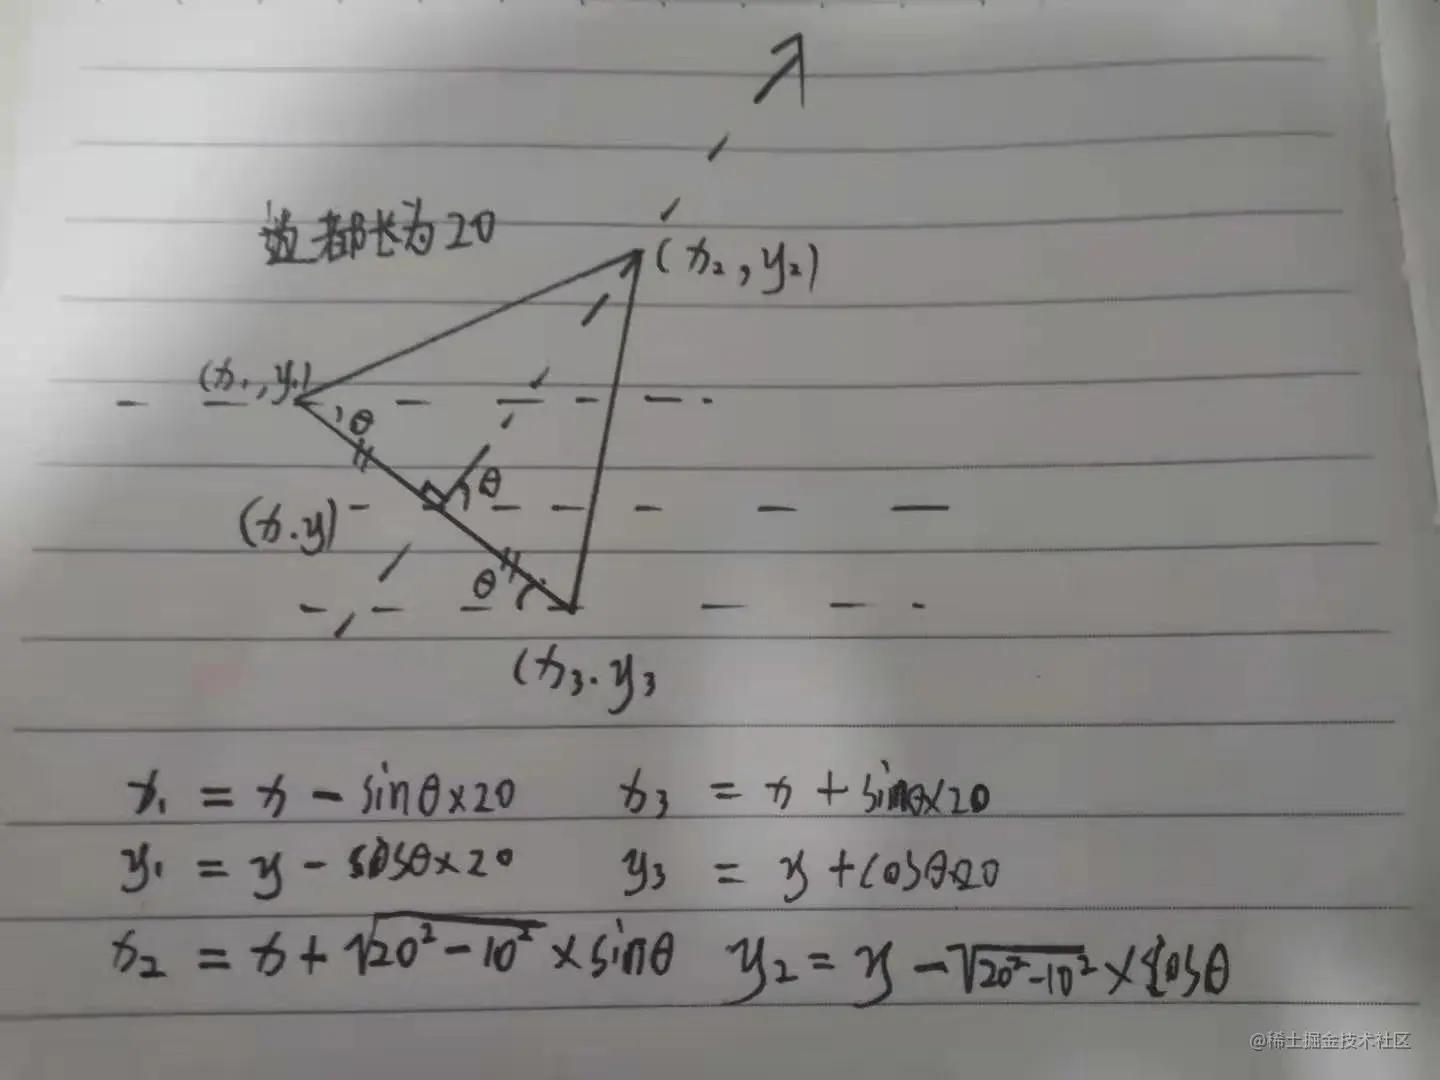 边都长为20
(x₂, y₂)
(x₁, y₁)
θ
θ
(x.y)
θ
(x₃.y₃
x₁ = x - sinθ×20 x₃ = x + sinθ×20
y₁ = y - cosθ×20 y₃ = y + cosθ×20
x₂ = x + √20²-10² × sinθ y₂ = y - √20²-10² × cosθ
@稀土掘金技术社区